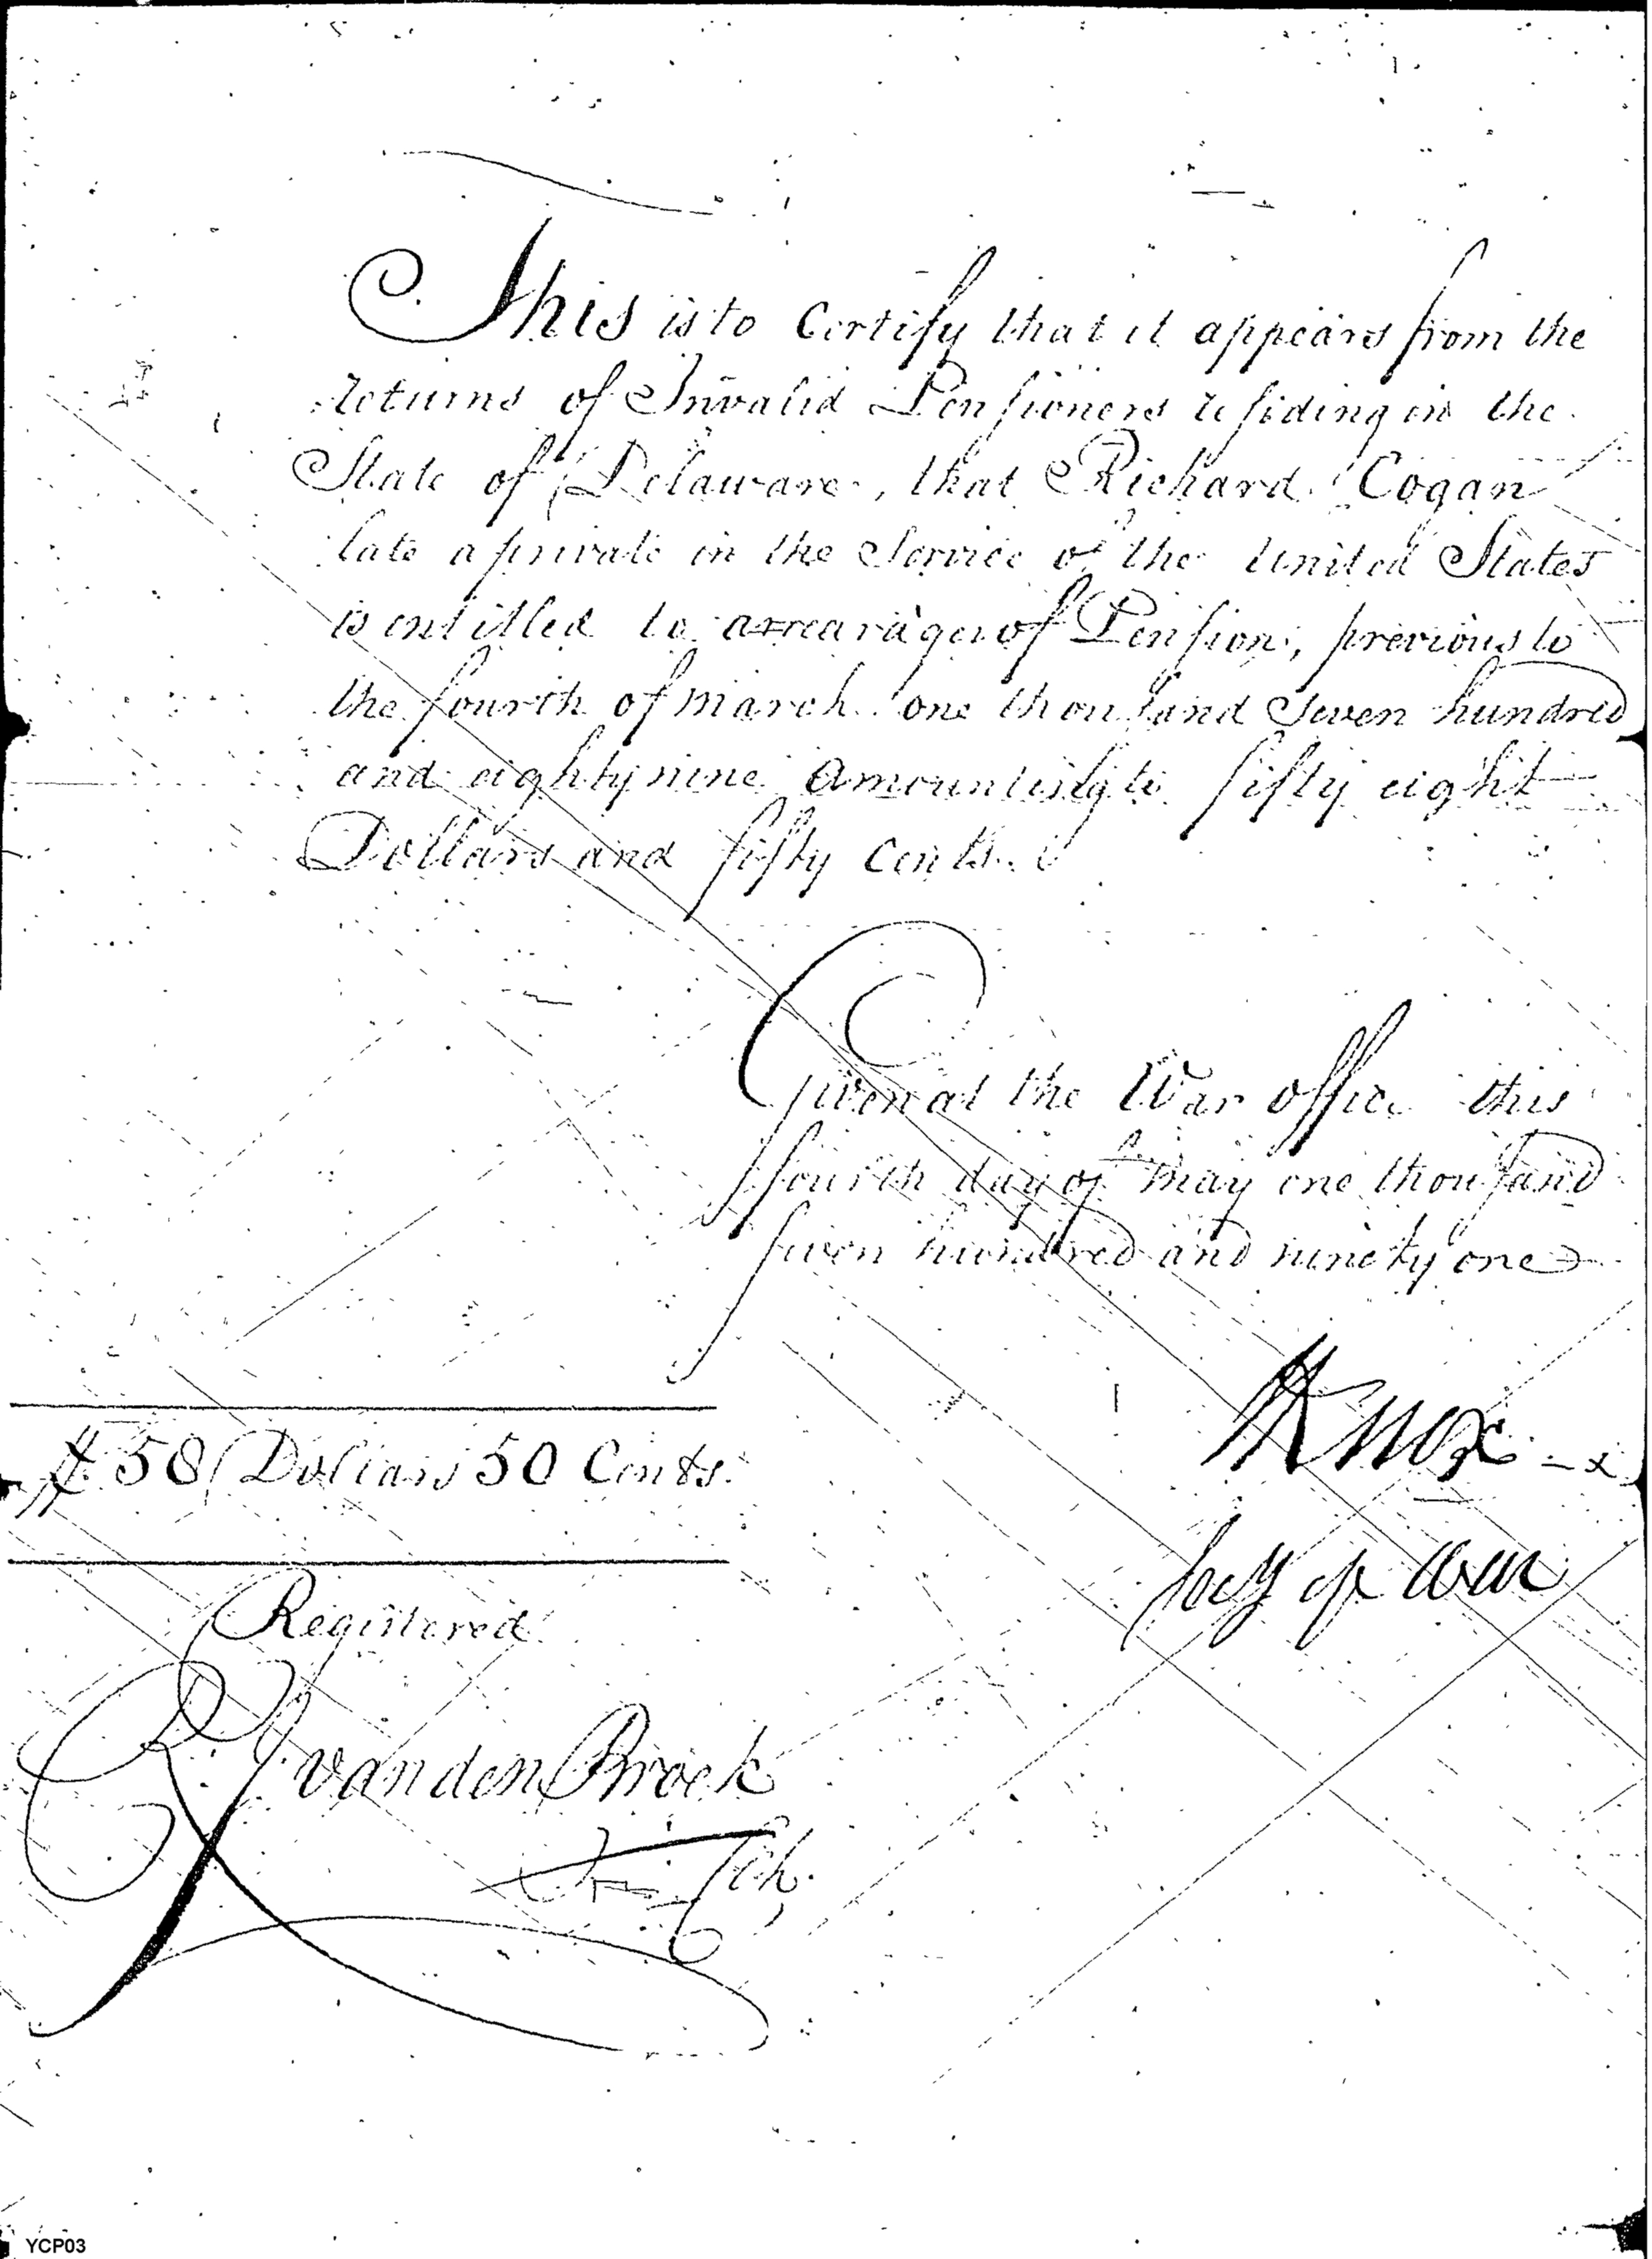 This is to Certify that it appears from the
returns of Invalid Pensioners residing in the
State of Delaware, that Richard Cogan
late a private in the Service of the United States
is entitled to arrearages of Pension, previous to
the fourth of march one thousand Seven hundred
and eighty nine Amounting to fifty eight
Dollars and fifty Cents.
Given at the War office this
fourth day of may one thousand
seven hundred and ninety one
HKnox
secy of War
58 Dollars 50 Cents.
Registered
vanden Broek
YCP03